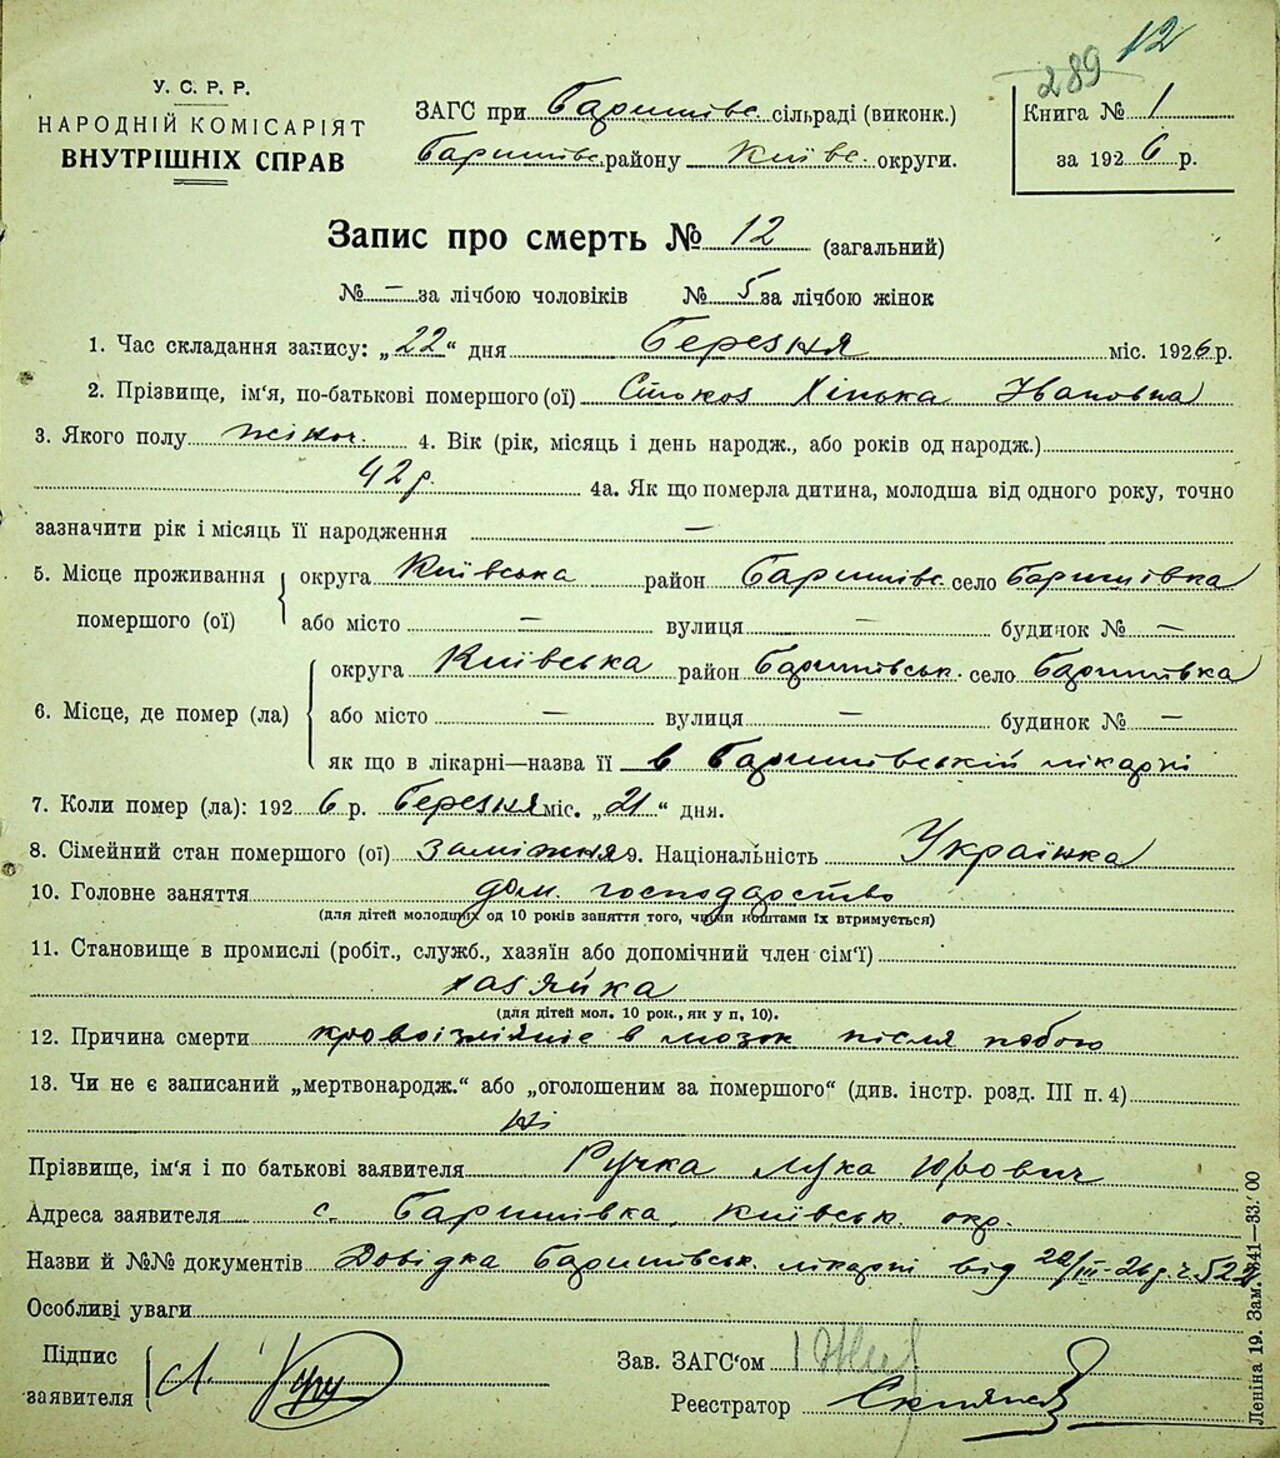 12
289
У. С. Р. Р.
НАРОДНІЙ КОМІСАРІЯТ
ВНУТРІШНІХ СПРАВ
ЗАГС при Баришівс. сільраді (виконк.)
Баришівс. району Київс. округи.
Книга № 1
за 1926 р.
Запис про смерть № 12 (загальний)
№ — за лічбою чоловіків № 5 за лічбою жінок
1. Час складання запису: „22“ дня Березня міс. 1926 р.
2. Прізвище, ім‘я, по-батькові помершого (ої) Хінька Івановна
3. Якого полу жіноч. 4. Вік (рік, місяць і день народж., або років од народж.)
42 р. 4а. Як що померла дитина, молодша від одного року, точно
зазначити рік і місяць її народження —
5. Місце проживання помершого (ої) округа Київська район Баришівс. село Баришівка
або місто — вулиця — будинок № —
6. Місце, де помер (ла) округа Київська район Баришівськ. село Баришівка
або місто — вулиця — будинок № —
як що в лікарні—назва її в Баришівській лікарні
7. Коли помер (ла): 1926 р. Березня міс. „21“ дня.
8. Сімейний стан помершого (ої) Заміжня 9. Національність Українка
10. Головне заняття дом. господарство
(для дітей молодших од 10 років заняття того, чиїми коштами їх втримується)
11. Становище в промислі (робіт., служб., хазяїн або допомічний член сім‘ї)
хазяйка
(для дітей мол. 10 рок., як у п, 10).
12. Причина смерти кровоізліяніє в мозок після побою
13. Чи не є записаний „мертвонародж.“ або „оголошеним за помершого“ (див. інстр. розд. III п. 4)
ні
Прізвище, ім‘я і по батькові заявителя Ручка Лука Юрович
Адреса заявителя с. Баришівка, Київськ. окр.
Назви й №№ документів Довідка Баришівськ. лікарні від 22/III-26 р. ч.
Особливі уваги
Підпис заявителя Л.
Зав. ЗАГС‘ом
Реєстратор
Леніна 19. Зам.